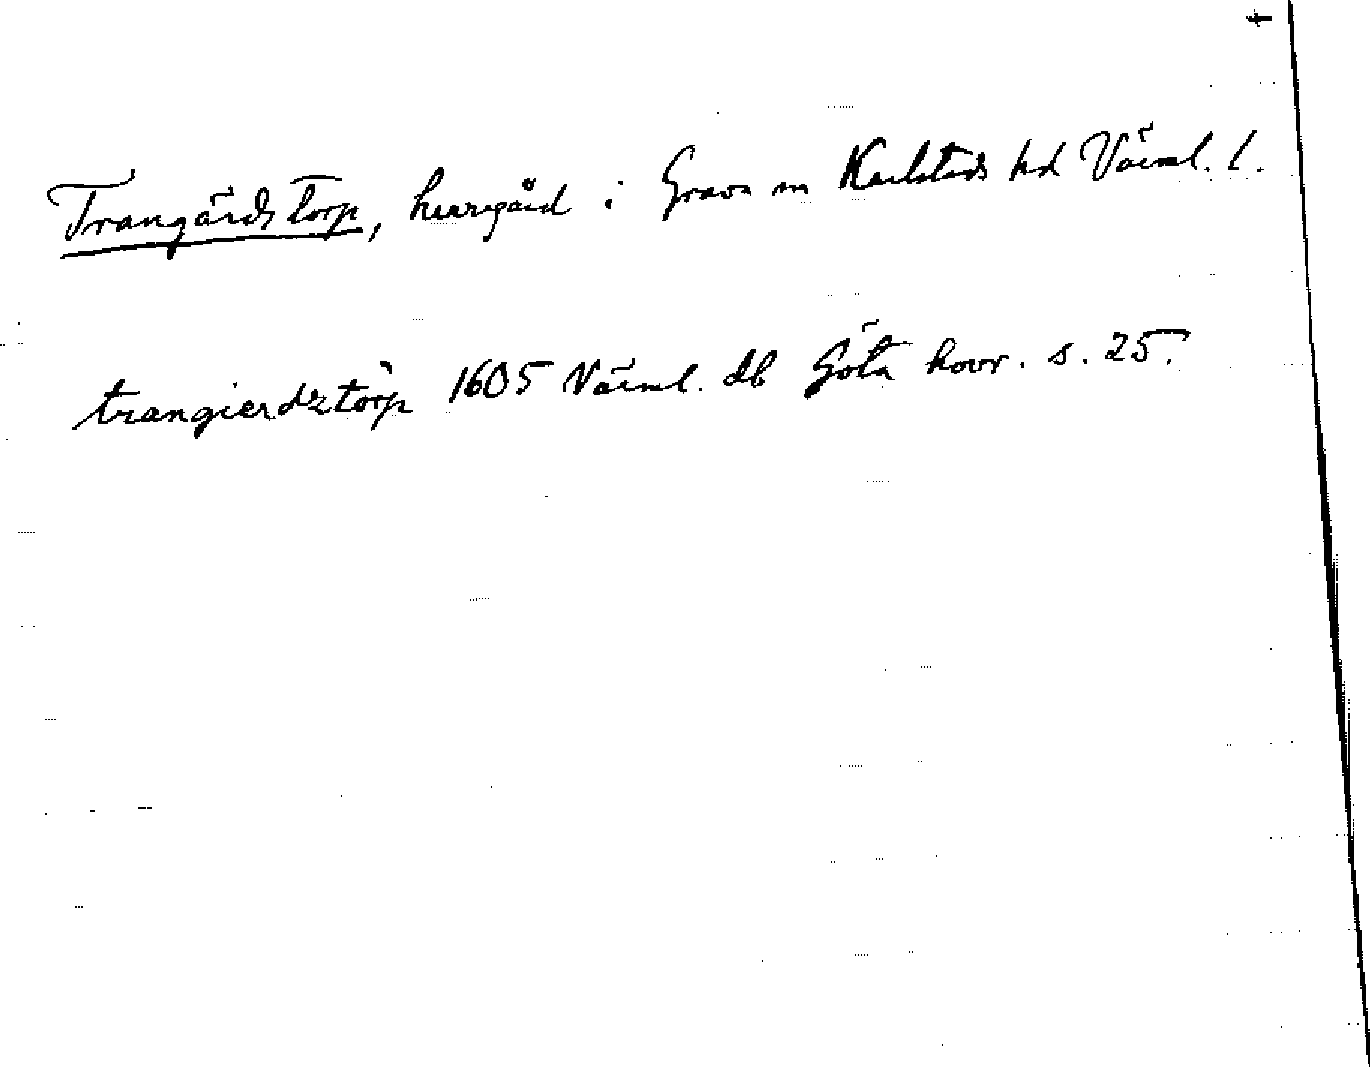 Trangärdstorp, herrgård i Grava sn Karlstads hd Värml. l.
trangierdztòrp 1605 Värml. db Göta hovr. s. 25.